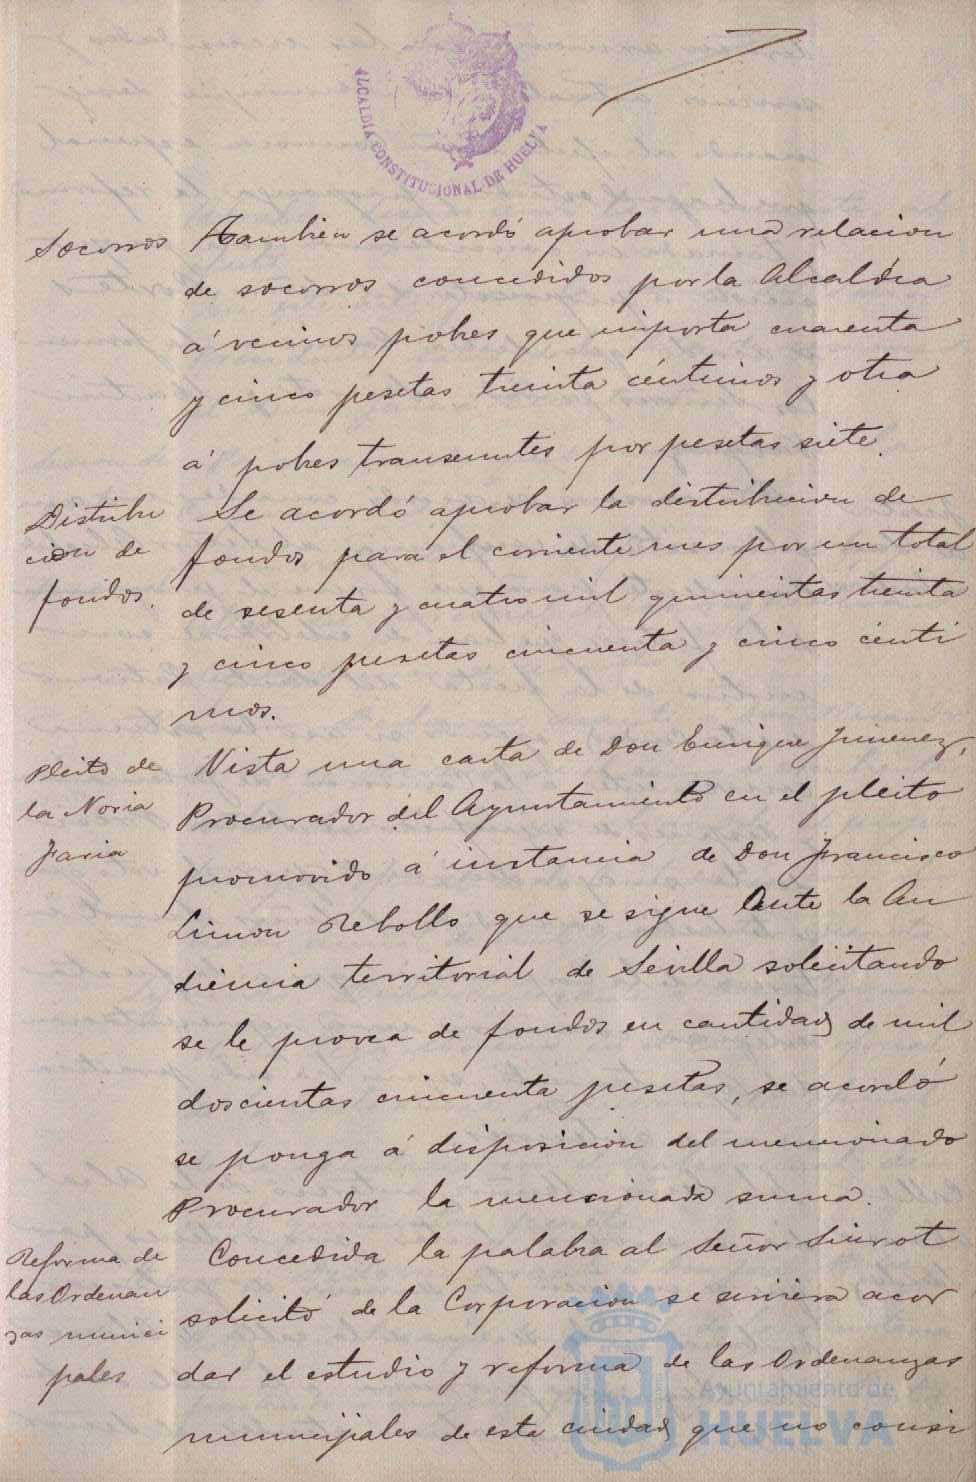 ALCALDIA CONSTITUCIONAL DE HUELVA
Socorros
Tambien se acordó aprobar una relacion
de socorros concedidos por la Alcaldía
á vecinos pobres que importa cuarenta
y cinco pesetas treinta céntimos y otra
á pobres transeuntes por pesetas siete.
Distribu
cion de
fondos.
Se acordó aprobar la distribucion de
fondos para el corriente mes por un total
de sesenta y cuatro mil quinientas treinta
y cinco pesetas cincuenta y cinco cénti
mos.
Pleito de
la Noria
Jaria
Vista una carta de Don Enrique Jimenez,
Procurador del Ayuntamiento en el pleito
promovido á instancia de Don Francisco
Limon Rebollo que se sigue ante la Au
diencia territorial de Sevilla solicitando
se le provea de fondos en cantidad de mil
doscientas cincuenta pesetas, se acordó
se ponga á disposicion del mencionado
Procurador la mencionada suma.
Reforma de
las Ordenan
zas munici
pales
Concedida la palabra al Señor Siurot
solicitó de la Corporacion se sirviera acor
dar el estudio y reforma de las Ordenanzas
municipales de esta ciudad que no consi
Ayuntamiento de
HUELVA